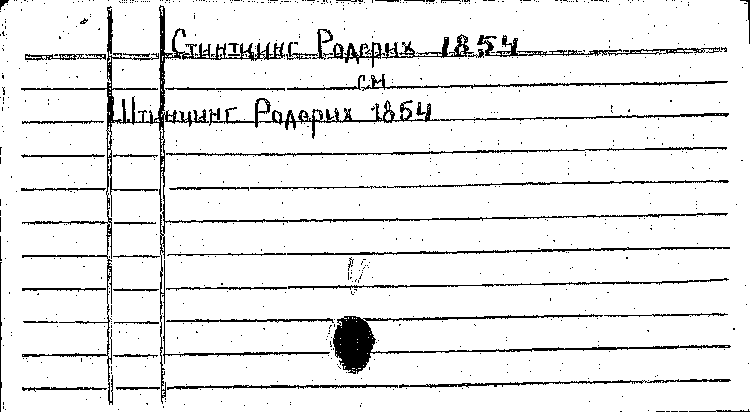 Стинтцинг Родерих 1854
см
Штинцинг Родерих 1854